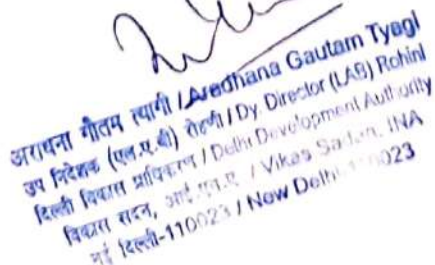 अराधना गौतम त्यागी / Aradhana Gautam Tyagi
उप निदेशक (एल.ए.बी) रोहणी / Dy. Director (LAB) Rohini
दिल्ली विकास प्राधिकरण / Delhi Development Authority
विकास सदन, आई.एन.ए. / Vikas Sadan, INA
नई दिल्ली-110023 / New Delhi-110023